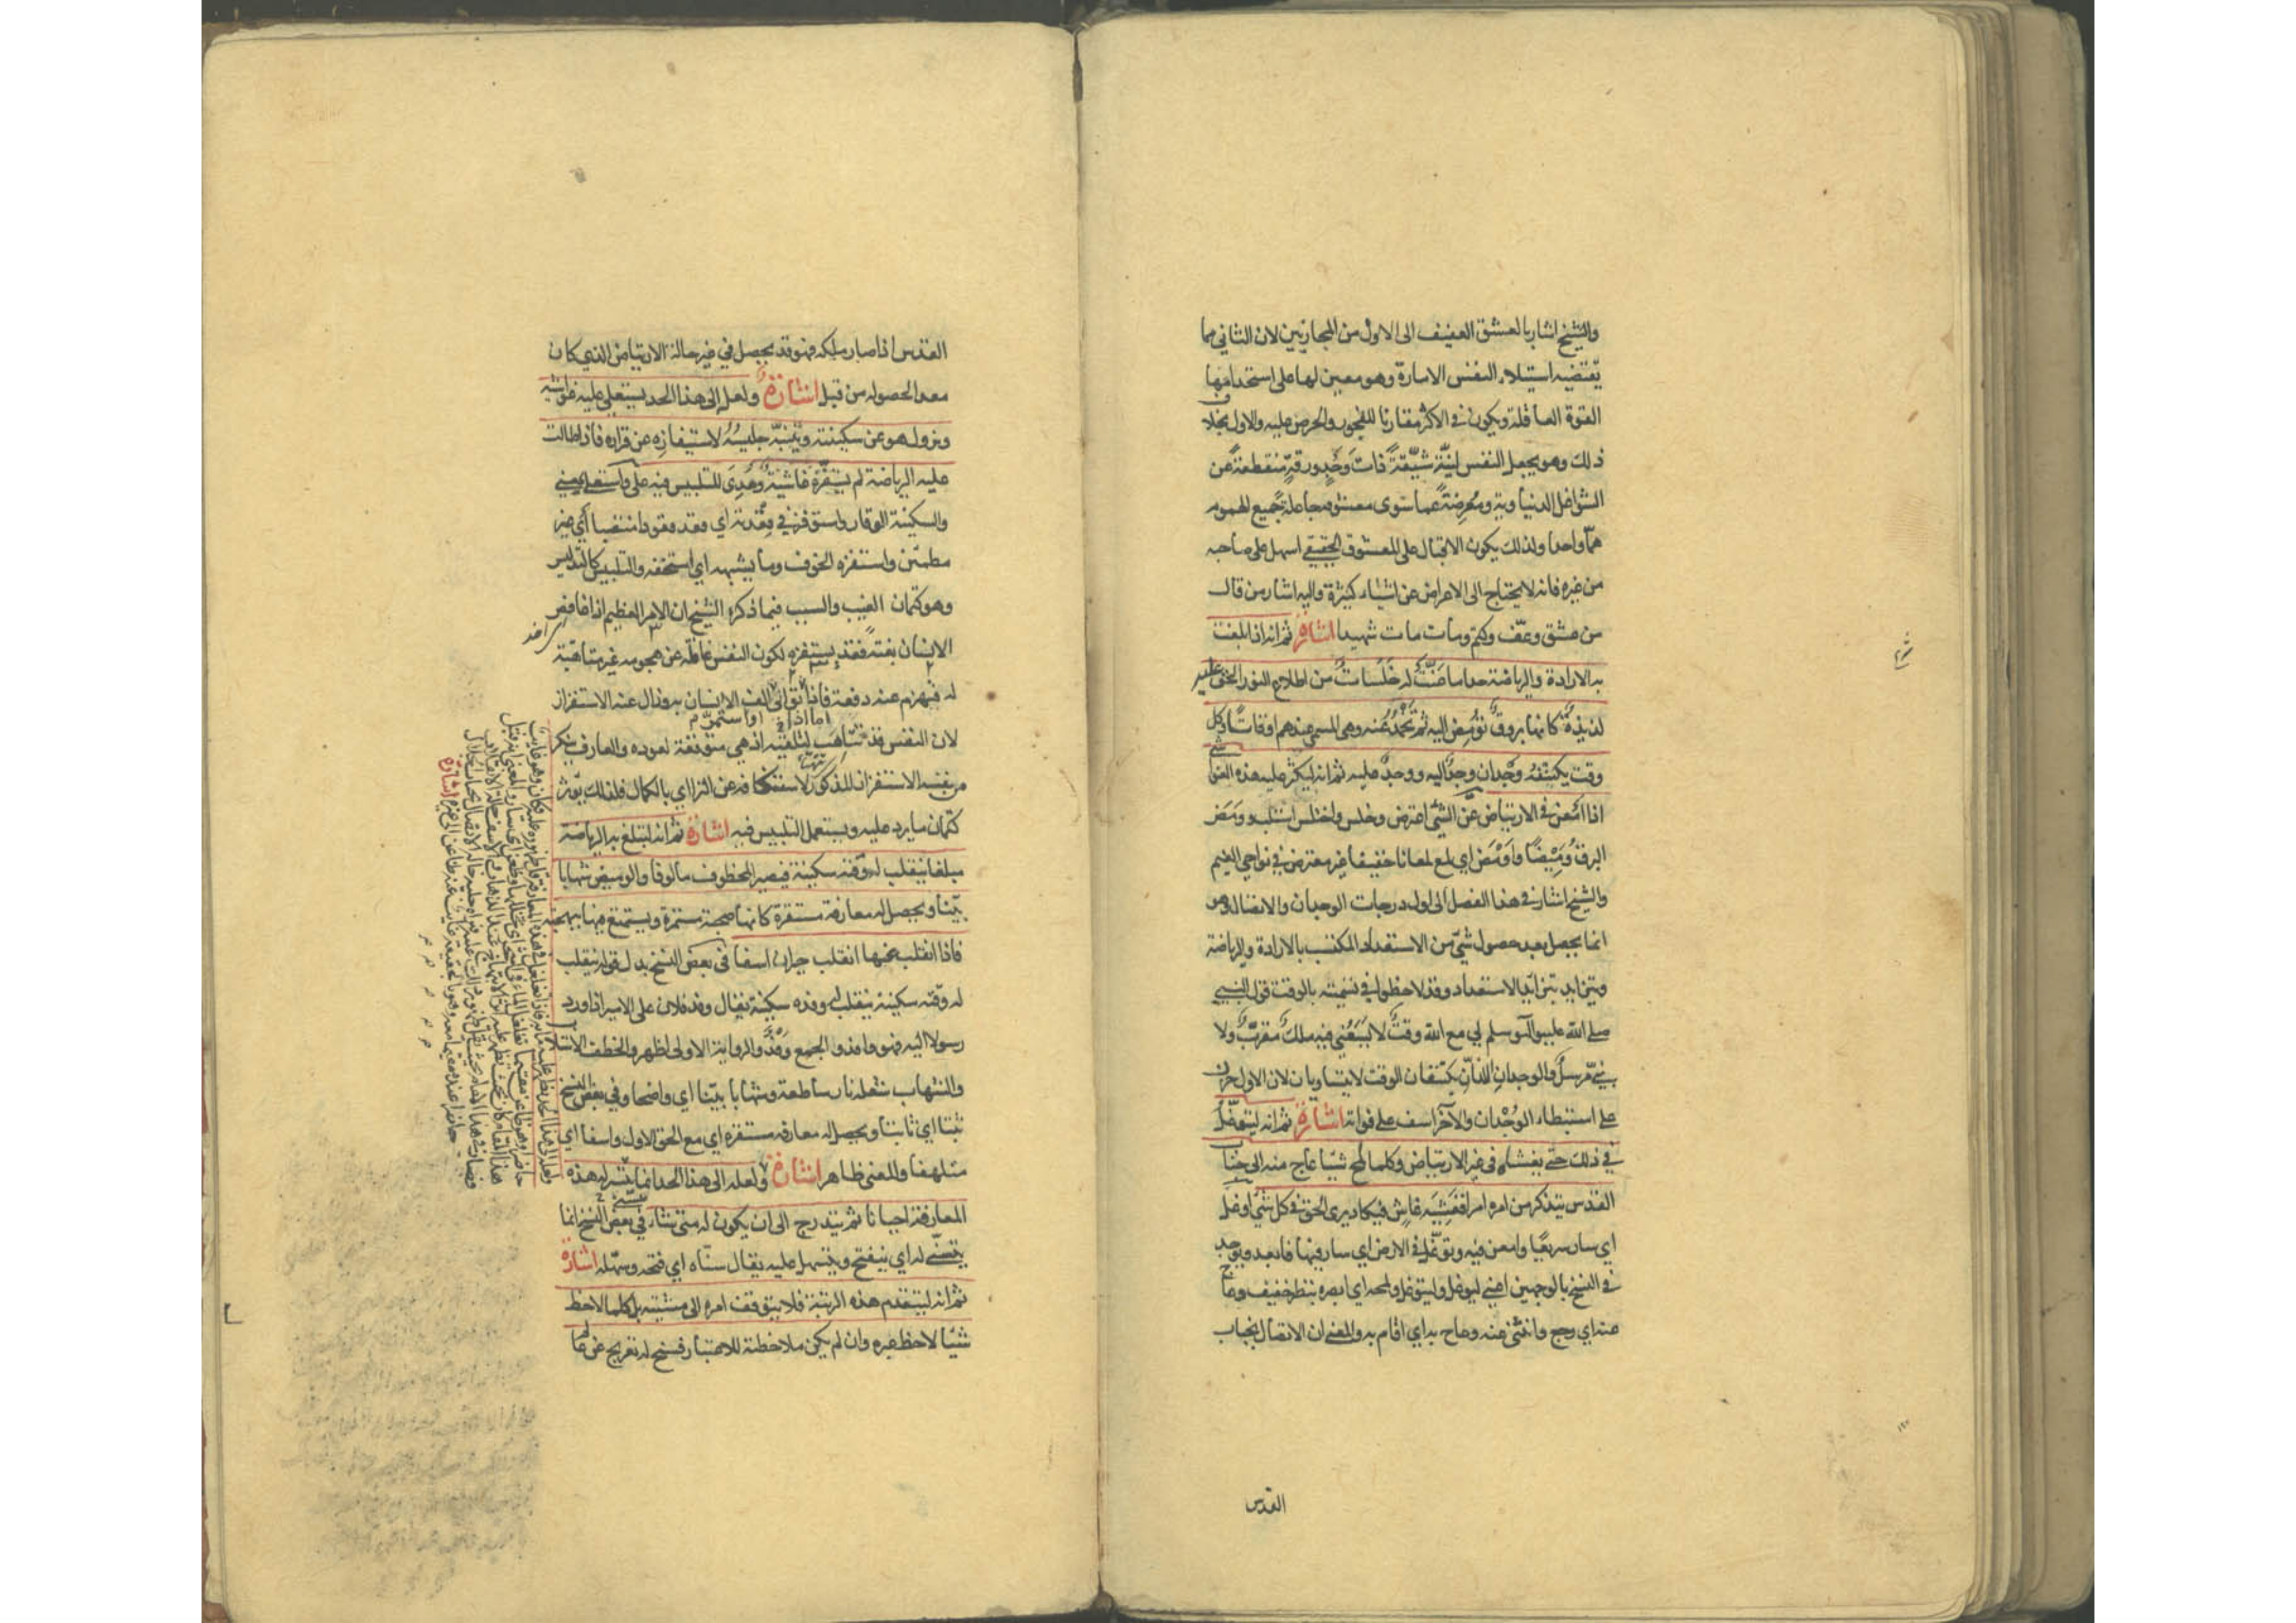 والشيخ اشار بالعشق العفيف الى الاول من المجازيين لان الثاني مما
يقتضيه استيلاء النفس الامارة وهو معين لها على استخدامها
القوة العاقلة ويكون في الاكثر مقارنا للفجور والحرص عليه والاول بخلاف
ذلك وهو يجعل النفس لينة شيقة ذات وجد ورقة منقطعة عن
الشواغل الدنياوية ومعرضة عما سوى معشوقه جاعلة جميع الهموم
هما واحدا ولذلك يكون الاقبال على المعشوق الحقيقي اسهل على صاحبه
من غيره فانه لا يحتاج الى الاعراض عن اشياء كثيرة واليه اشار من قال
من عشق وعف وكتم ومات مات شهيدا اشارة ثم انه اذا بلغت
به الارادة والرياضة حدا ما عنت له خلسات من اطلاع نور الحق عليه
لذيذة كانها بروق تومض اليه ثم تخمد عنه وهي المسمى عندهم اوقاتا وكل
وقت يكتنفه وجدان وجد اليه ووجد عليه ثم انه ليكثر عليه هذه الغواشي
اذا امعن في الارتياض عن الشيء اعترض وخلس واختلس استلب وومض
البرق وميضا واومض اي لمع لمعانا خفيفا غير معترض في نواحي الغيم
والشيخ اشار في هذا الفصل الى اول درجات الوجدان والاتصال وهو
انما يحصل بعد حصول شيء من الاستعداد المكتسب بالارادة والرياضة
ويتزايد بتزايد الاستعداد وقد لاحظوا في تسميته بالوقت قول النبي
صلى الله عليه وآله وسلم لي مع الله وقت لا يسعني فيه ملك مقرب ولا
نبي مرسل والوجدان اللذان يكتنفان الوقت لا يتساويان لان الاول حزن
على استبطاء الوجدان والآخر اسف على فواته اشارة ثم انه ليتوغل
في ذلك حتى يغشاه في غير الارتياض وكلما لمح شيئا عاج منه الى جناب
القدس يتذكر من امره امرا فغشيه غاش فيكاد يرى الحق في كل شيء اوغل
اي سار سريعا وامعن فيه وتوغل في الارض اي سار فيها فابعد ويوجد
في النسخ بالوجهين اعني ليوغل وليتوغل ولمحه اي ابصره بنظر خفيف وعاج
عنه اي رجع وانثنى عنه وعاج به اي اقام به والمعنى ان الاتصال بجناب
القدس
القدس اذا صار ملكه فهو قد يحصل في غير حالة الارتياض الذي كان
معدا لحصوله من قبل اشارة ولعله الى هذا الحد يستعلي عليه غواشيه
ويزول هو عن سكينته ويتنبه جليسه لاستيفازه عن قراره فاذا طالت
عليه الرياضة لم يستفزه غاشية وهدي للتلبيس فيه علي واستعلى بمعنى
والسكينة الوقار واستوفز في قعدته اي قعد قعودا منتصبا اي غير
مطمئن واستفزه الخوف وما يشبهه اي استخفه والتلبيس كالتدليس
وهو كتمان العيب والسبب فيما ذكره الشيخ ان الامر العظيم اذا غافص
الانسان بغتة فقد يستفزه لكون النفس غافلة عن هجومه غير متأهبة
له فينهزم عنه دفعة فاذا توالى الف الانسان به وزال عنه الاستفزاز
لان النفس قد تتأهب لتلقيه اذ هي متوقعة لعوده والعارف ينكر
من نفسه الاستفزاز المذكور لاستنكافه عن الترائي بالكمال فلذلك يؤثر
كتمان ما يرد عليه ويستعمل التلبيس فيه اشارة ثم انه لتبلغ به الرياضة
مبلغا ينقلب له وقته سكينة فيصير المخطوف مألوفا والوميض شهابا
بينا ويحصل له معارفة مستقرة كانها صحبة مستمرة ويستمتع فيها ببهجته
فاذا انقلب عنها انقلب حيران اسفا في بعض النسخ بدل قوله ينقلب
له وقته سكينة ينقلب له وفده سكينة يقال وفد فلان على الامير اذا ورد
رسولا اليه فهو وافد والجمع وفد والرواية الاولى اظهر والخطف الاستلاب
والشهاب شعلة نار ساطعة وشهابا بينا اي واضحا وفي بعض النسخ
ثبتا اي ثابتا ويحصل له معارفة مستقرة اي مع الحق الاول واسفا اي
متلهفا والمعنى ظاهر اشارة ولعله الى هذا الحد انما يتسنى له هذه
المعارفة احيانا ثم يتدرج الى ان يكون له متى شاء في بعض النسخ انما
يتسنى له اي ينفتح ويتسهل عليه يقال سناه اي فتحه وسهله اشارة
ثم انه ليتقدم هذه الرتبة فلا يتوقف امره الى مشيته بل كلما لاحظ
شيئا لاحظ غيره وان لم يكن ملاحظته للاعتبار فسنح له تعريج عن عا